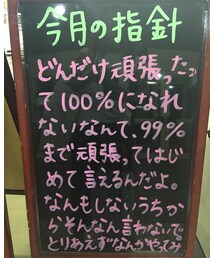 今月の指針
どんだけ頑張ったっ
て100%になれ
ないなんて、99%
まで頑張ってはじ
めて言えるんだよ。
なんもしないうちか
らそんなん言わないで
とりあえずなんかやってみ